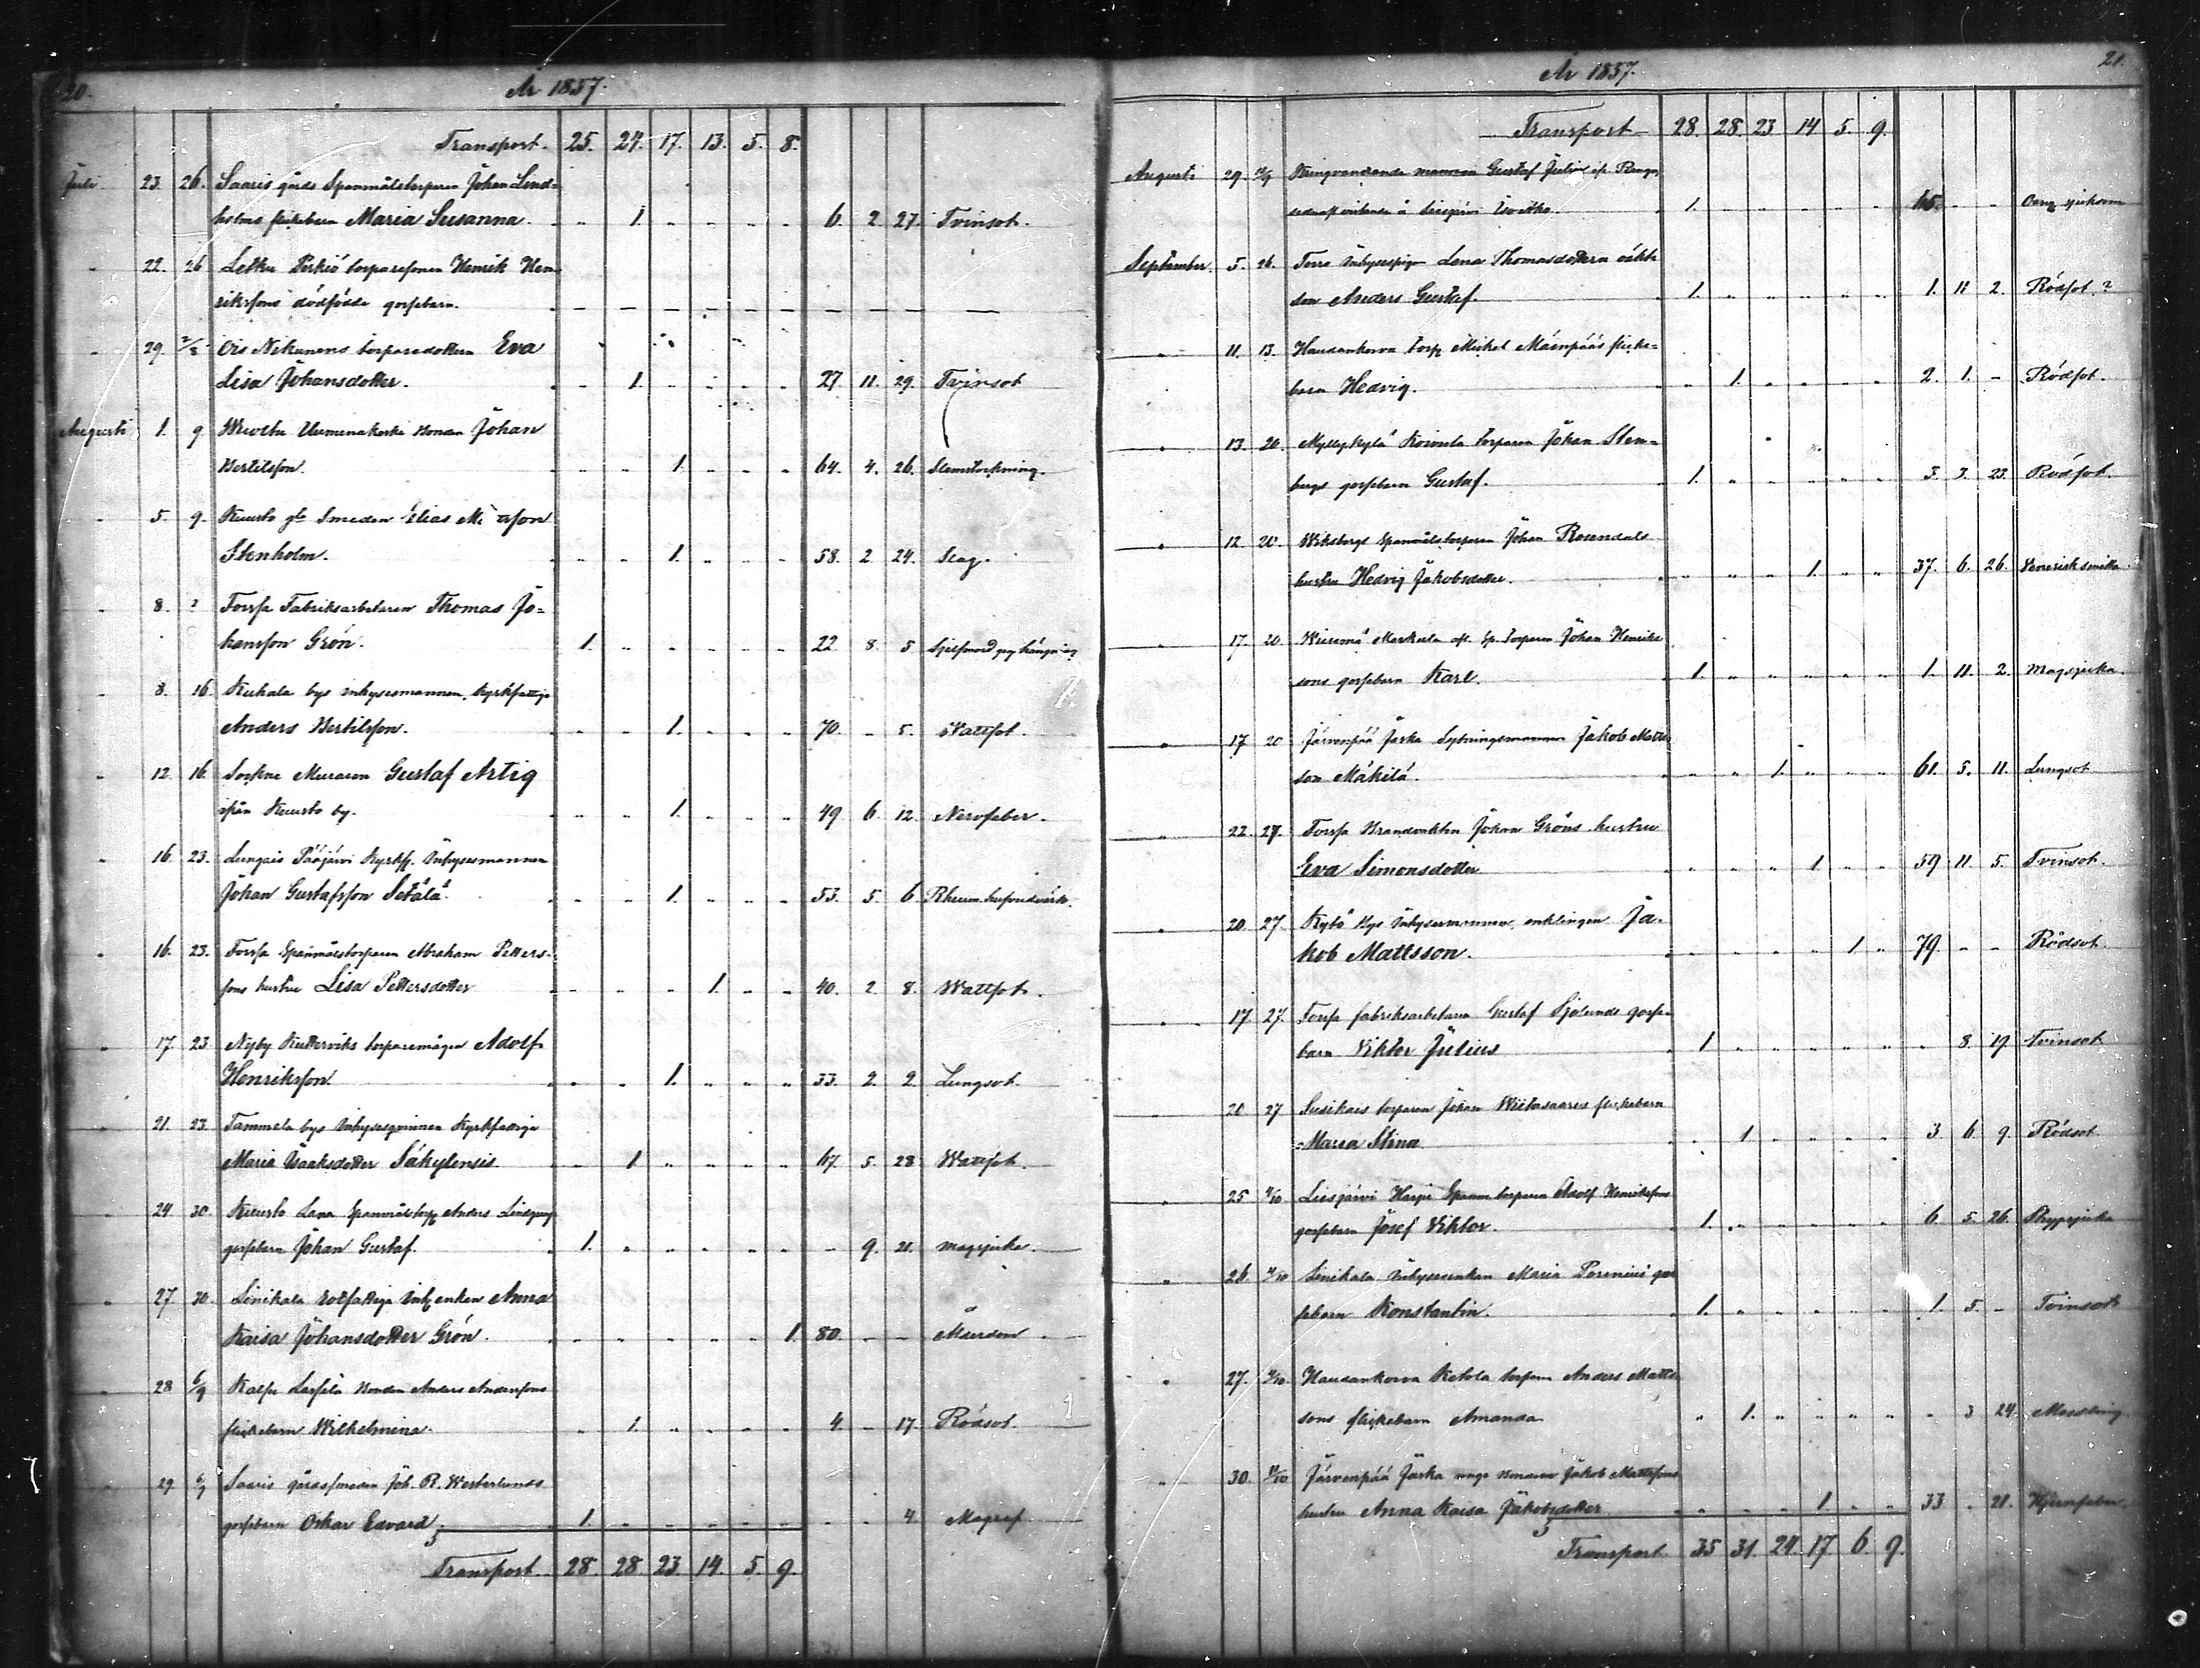 20.
År 1857.
Transport. 25. 24. 17. 13. 5. 8.
Juli 23. 26. Saaris gårds Spanmålstorparen Johan Lind-
holms flickebarn Maria Susanna. 1. 6. 2 27. Tvinsot.
22. 26 Letku torparesonen Henrik Hen
rikssons dödfödda gossebarn.
29. 2/8 Ois Nikunens torparedottern Eva
Lisa Johansdotter. 1. 27. 11. 29. Tvinsot
Augusti 1. 9 bonden Johan
Bertilsson. 1. 64. 4. 26.
5. 9. Kuusto gla Smeden Elias
Stenholm. 1. 58. 2 24. Slag.
8. ? Forssa Fabriksarbetaren Thomas Jo-
hansson Grön. 1. 22 8. 5 Sjelfmord gng hängning
8. 16 Kuhala bys inhysesmannen, kyrkfattige
Anders Bertilsson. 1. 70. - 5. Wattsot.
12. 16. Sockne Muraren Gustaf Artig
ifrån Kuusto by. 1. 49 6. 12. Nervfeber.
16. 23. Lungais Pääjärvi Kyrkf. Inhysesmannen
Johan Gustafsson Setälä. 1. 53. 5. 6
16. 23. Forssa Spanmålstorparen Abraham Petters-
sons hustru Lisa Pettersdotter 1. 40. 2 8. Wattsot.
17. 23 Nyby torparemågen Adolf
Henriksson. 1. 33. 2. 2 Lungsot.
21. 23. Tammela bys Inhysesqvinnan Kyrkfattiga
Maria Isaaksdotter Säkylensis. 1 67. 5. 28 Wattsot.
24 30. Kuusto Lana Spanmålstorp. Anders
gossebarn Johan Gustaf. 1. - 9. 21. magsjuka.
27. 30. Linikala rotfattiga Inh. enkan Anna
Kaisa Johansdotter Grön. 1. 80. - - Ålderdom
28 6/9 Kalfs bonden Anders Anderssons
flickebarn Wilhelmina. 1. 4 - 17. Rödsot.
29 6/9 Saaris gårdssmeden Joh. R. Westerlunds
gossebarn Oskar Edvard 1. 4. Magref
Transport. 28. 28. 23 14. 5. 9.
21.
År 1857.
Transport 28. 28. 23 14 5. 9.
Augusti 29. Kringvandrande mannen Gustaf
65. - -
September. 5. 26. Torro Inhysespigan Lena Thomasdotters oäkta
son Anders Gustaf. 1. 1. 11 2. Rödsot. ?
11. 13. Haudankorva torp. Mickel Mäenpääs flicke-
barn Hedvig. 1. 2. 1. - Rödsot.
13. 20. Myllykylä Koivula torparen Johan Sten-
bergs gossebarn Gustaf. 1. 3 3. 23. Rödsot.
12. 20. Wiksbergs spanmålstorparen Johan Rosendals
hustru Hedvig Jakobsdotter. 1. 37. 6. 26. Venerisk smitta
17. 20 Sp. torparen Johan Henriks
sons gossebarn Karl. 1. 1. 11. 2. Magsjuka.
17 20 Järvenpää Jaska Sytningsmannen Jakob Matts
son Mäkilä. 1. 61. 5. 11. Lungsot
22. 27. Forssa Brandvakten Johan Gröns hustru
Eva Simonsdotter 1 59 11. 5. Tvinsot.
20. 27. Kytö bys Inhysesmannen, enklingen Ja-
kob Mattsson. 1. 79 - - Rödsot.
17 27. Forssa fabriksarbetaren Gustaf Sjölunds gosse
barn Viktor Julius 1 8. 19. Tvinsot
20 27 Susikais torparen Johan Wiitasaares flickebarn
Maria Stina 1. 3 6. 9. Rödsot
25 4/10 Liesjärvi Harju Spanm. torparen Adolf Henrikssons
gossebarn Josef Viktor. 1. 6 5. 26. Ryggsjuka
26. 4/10 Linikala Inhysesenkan Maria gos
sebarn Konstantin. 1. 1. 5. - Tvinsot
27. 4/10 Haudankorva Ketola torparen Anders Matts
sons flickebarn Amanda 1. 3 24. Messling
30. 11/10 Järvenpää Jaska unge bonden Jakob Mattssons
hustru Anna Kaisa Jakobsdotter 1 33 - 21. Hjernfeber.
Transport 35 31. 24. 17 6 9.